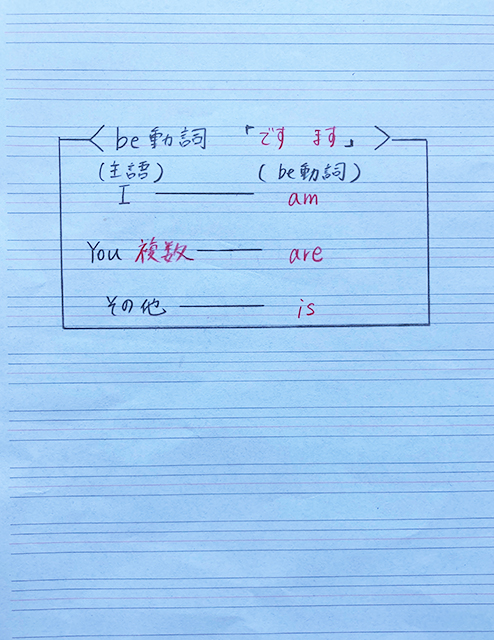 be動詞 「です ます」
(主語) (be動詞)
I am
You 複数 are
その他 is